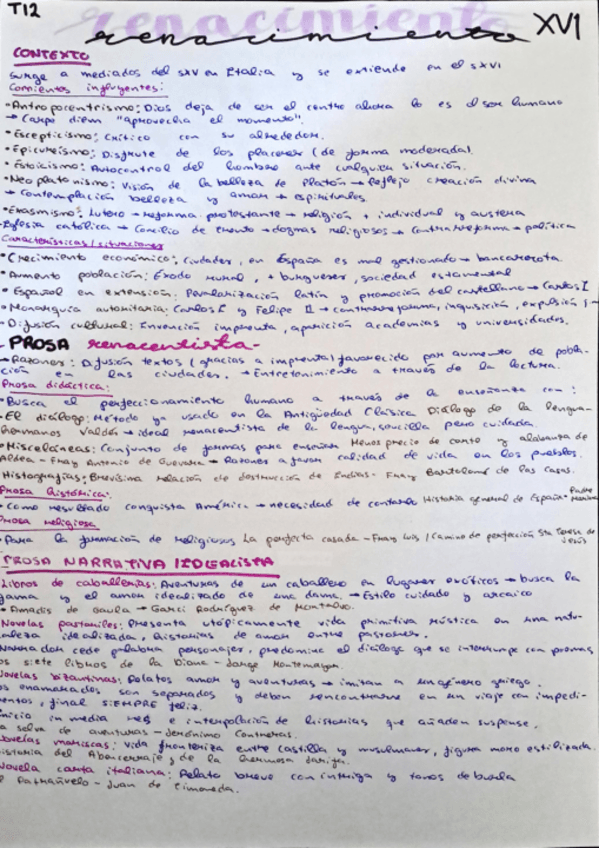 T12
renacimiento
renacimiento XVI
CONTEXTO
Surge a mediados del sXV en Italia y se extiende en el sXVI
Corrientes influyentes:
• Antropocentrismo: Dios deja de ser el centro ahora lo es el ser humano
→ Carpe diem "aprovecha el momento".
• Escepticismo: Crítico con su alrededor.
• Epicureísmo: Disfrute de los placeres (de forma moderada).
• Estoicismo: Autocontrol del hombre ante cualquier situación.
• Neoplatonismo: Visión de la belleza de Platón → Reflejo creación divina
→ Contemplación belleza y amor → espirituales.
• Erasmismo: Lutero → reforma protestante → religión + individual y austera
Iglesia católica → Concilio de trento → dogmas religiosos → Contrarreforma → política
Características/situaciones
• Crecimiento económico: Ciudades, en España es mal gestionado → bancarrota.
• Aumento población: Éxodo rural, + burgueses, sociedad estamental
• Español en extensión: latín y promoción del castellano → Carlos I
• Monarquía autoritaria: Carlos I y Felipe II → contrarreforma, inquisición, expulsión j
• Difusión cultural: Invención imprenta, aparición academias y universidades.
PROSA renacentista-
→ Razones: Difusión textos (gracias a imprenta) favorecido por aumento de pobla-
ción en las ciudades. → Entretenimiento a través de la lectura.
Prosa didáctica:
• Busca el perfeccionamiento humano a través de la enseñanza con:
- El diálogo: Método ya usado en la Antigüedad Clásica Diálogo de la lengua-
hermanos Valdés → ideal renacentista de la lengua, sencilla pero cuidada.
• Misceláneas: Conjunto de formas para enseñar Menosprecio de corte y alabanza de
Aldea - Fray Antonio de Guevara → Razones a favor calidad de vida en los pueblos.
Histografías: Brevísima relación de destrucción de Indias - Fray Bartolomé de las Casas.
Prosa histórica:
• Como resultado conquista América → necesidad de contarlo Historia general de España - Padre Mariana
Prosa religiosa
• Para la formación de religiosos La perfecta casada - Fray Luis / Camino de perfección Sta Teresa de Jesús
PROSA NARRATIVA IDEALISTA
Libros de caballerías: Aventuras de un caballero en lugares exóticos → busca la
fama y el amor idealizado de una dama. → Estilo cuidado y arcaico
• Amadís de Gaula → Garci Rodríguez de Montalvo.
Novelas pastoriles: Presenta utópicamente vida primitiva rústica en una natu-
raleza idealizada, historias de amor entre pastores.
Narrador cede palabra personajes, predomina el diálogo que se interrumpe con poemas
os siete libros de la Diana - Jorge Montemayor.
Novelas bizantinas: Relatos amor y aventuras → imitan a un género griego.
os enamorados son separados y deben reencontrarse en un viaje con impedi-
mentos, final SIEMPRE feliz.
nicio in media res e interpolación de historias que añaden suspense.
a selva de aventuras - Jerónimo Contreras.
Novelas moriscas: vida fronteriza entre castilla y musulmanes, figura moro estilizada.
istoria del Abencerraje y de la hermosa Jarifa.
Novela corta italiana: Relato breve con intriga y tonos de burla
l Patrañuelo - Juan de Timoneda.